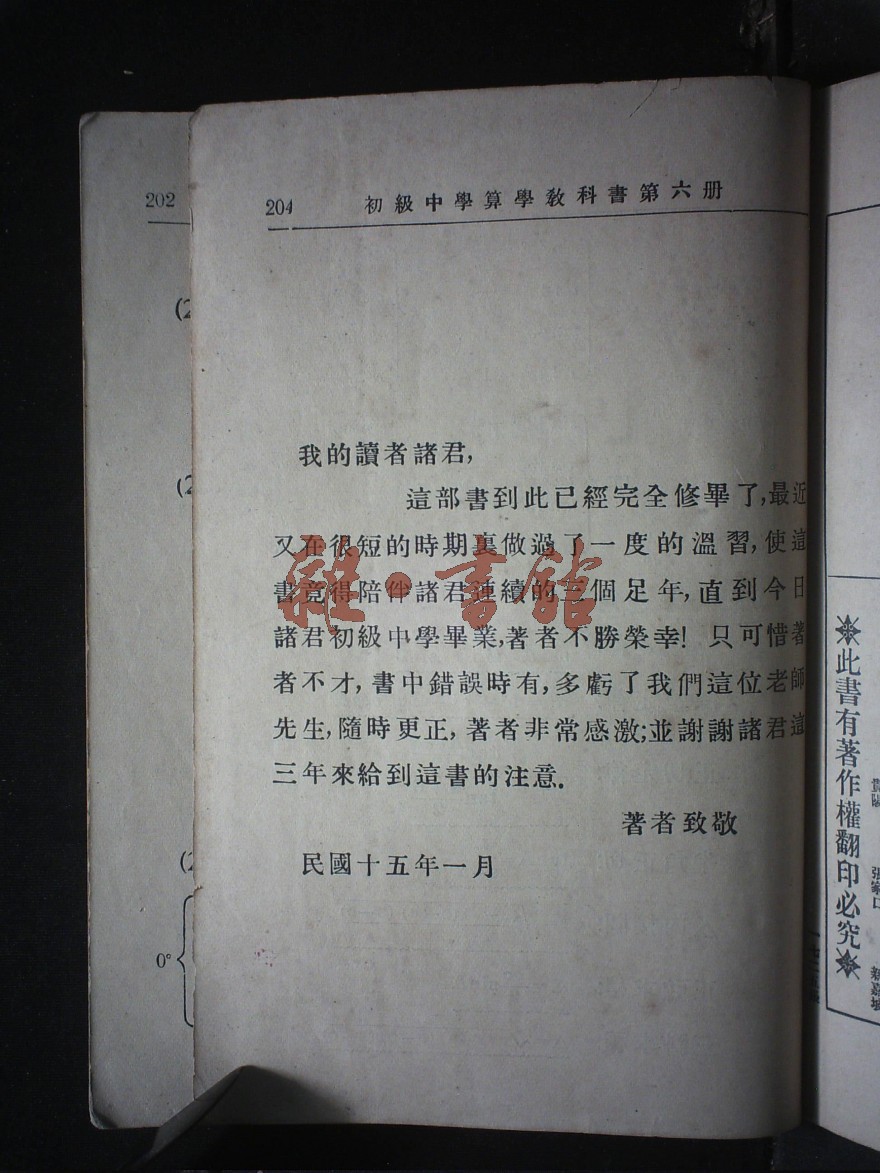 202
204 初級中學算學教科書第六册
(2
(2
(2
0°
我的讀者諸君,
這部書到此已經完全修畢了,最近
又在很短的時期裏做過了一度的溫習,使這
書竟得陪伴諸君連續的三個足年,直到今日
諸君初級中學畢業,著者不勝榮幸! 只可惜著
者不才,書中錯誤時有,多虧了我們這位老師
先生,隨時更正,著者非常感激;並謝謝諸君這
三年來給到這書的注意.
著者致敬
民國十五年一月
雜·書館
此書有著作權翻印必究
張家口
新嘉坡